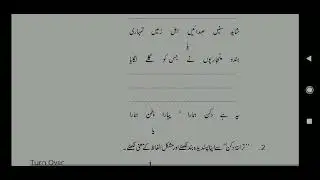 شاید سنیں صدائیں اہل زمیں تمہاری
یا
بندہ پنجاریوں نے جس کو گلے لگایا
یہ ہے وطن ہمارا پیارا وطن ہمارا
یا
2. "ترانۂ دکن" سے اپنا پسندیدہ بند لکھئے اور مشکل الفاظ کے معنی لکھئے۔
Turn Over